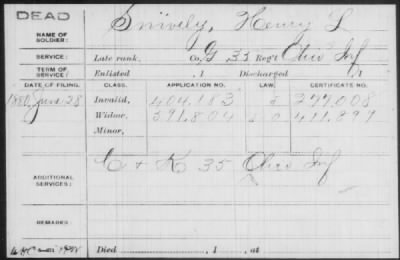 DEAD
NAME OF SOLDIER: Snively, Henry L
SERVICE: Late rank, Co. G 35 Reg't Ohio Inf
TERM OF SERVICE: Enlisted , 1 Discharged , 1
DATE OF FILING. CLASS. APPLICATION NO. LAW. CERTIFICATE NO.
1880, June 28 Invalid, 404,183 277,008
Widow, 591,804 411,297
Minor,
ADDITIONAL SERVICES: C + K 35 Ohio Inf
REMARKS:
Died , 1 , at